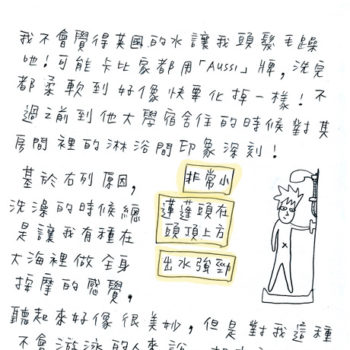 我不會覺得英國的水讓我頭髮毛躁
吔!可能卡比家都用「AUSSI」牌,洗完
都柔軟到好像快畢化掉一樣!不
過之前到他大學宿舍住的時候對其
房間裡的淋浴間印象深刻!
基於右列原因,
洗澡的時候總
是讓我有種在
大海裡做全身
按摩的感覺,
非常小
蓮蓬頭在
頭頂上方
出水強勁
聽起來好像很美妙,但是對我這種
不會游泳的人來說,